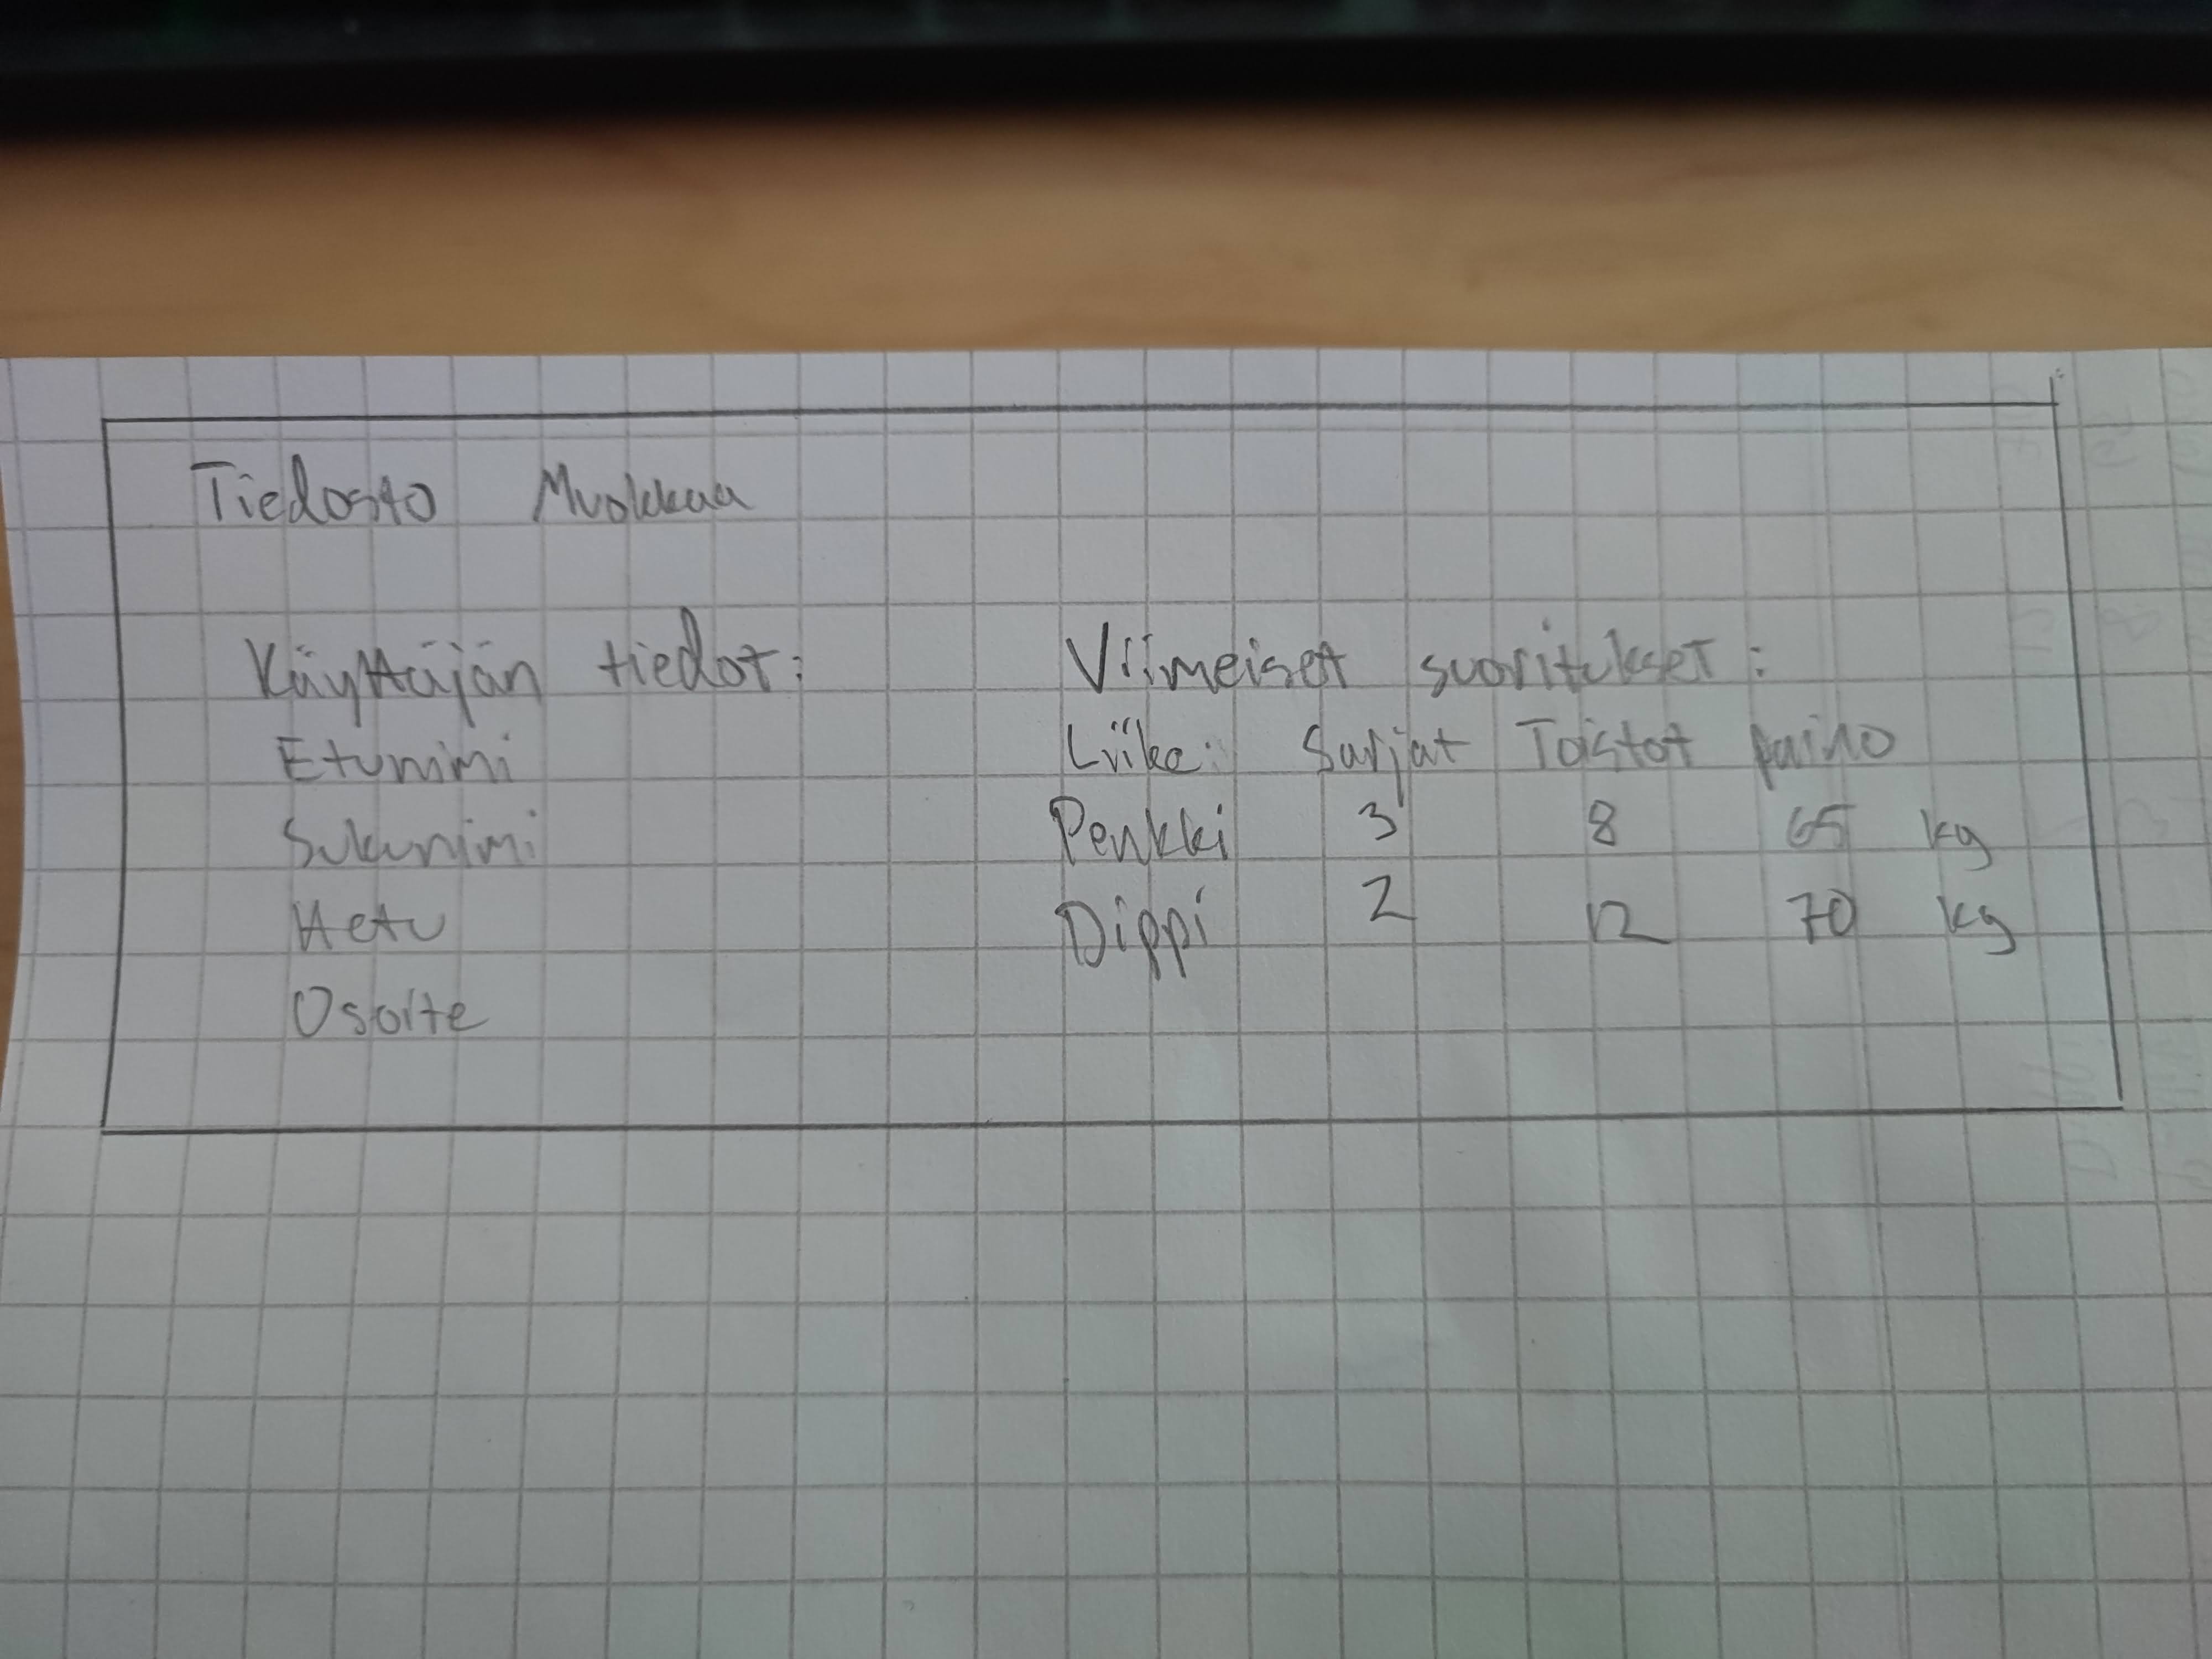 Tiedosto Muokkaa
Käyttäjän tiedot:
Etunimi
Sukunimi
Hetu
Osoite
Viimeiset suoritukset:
Liike: Sarjat Toistot paino
Penkki 3 8 65 kg
Dippi 2 12 70 kg